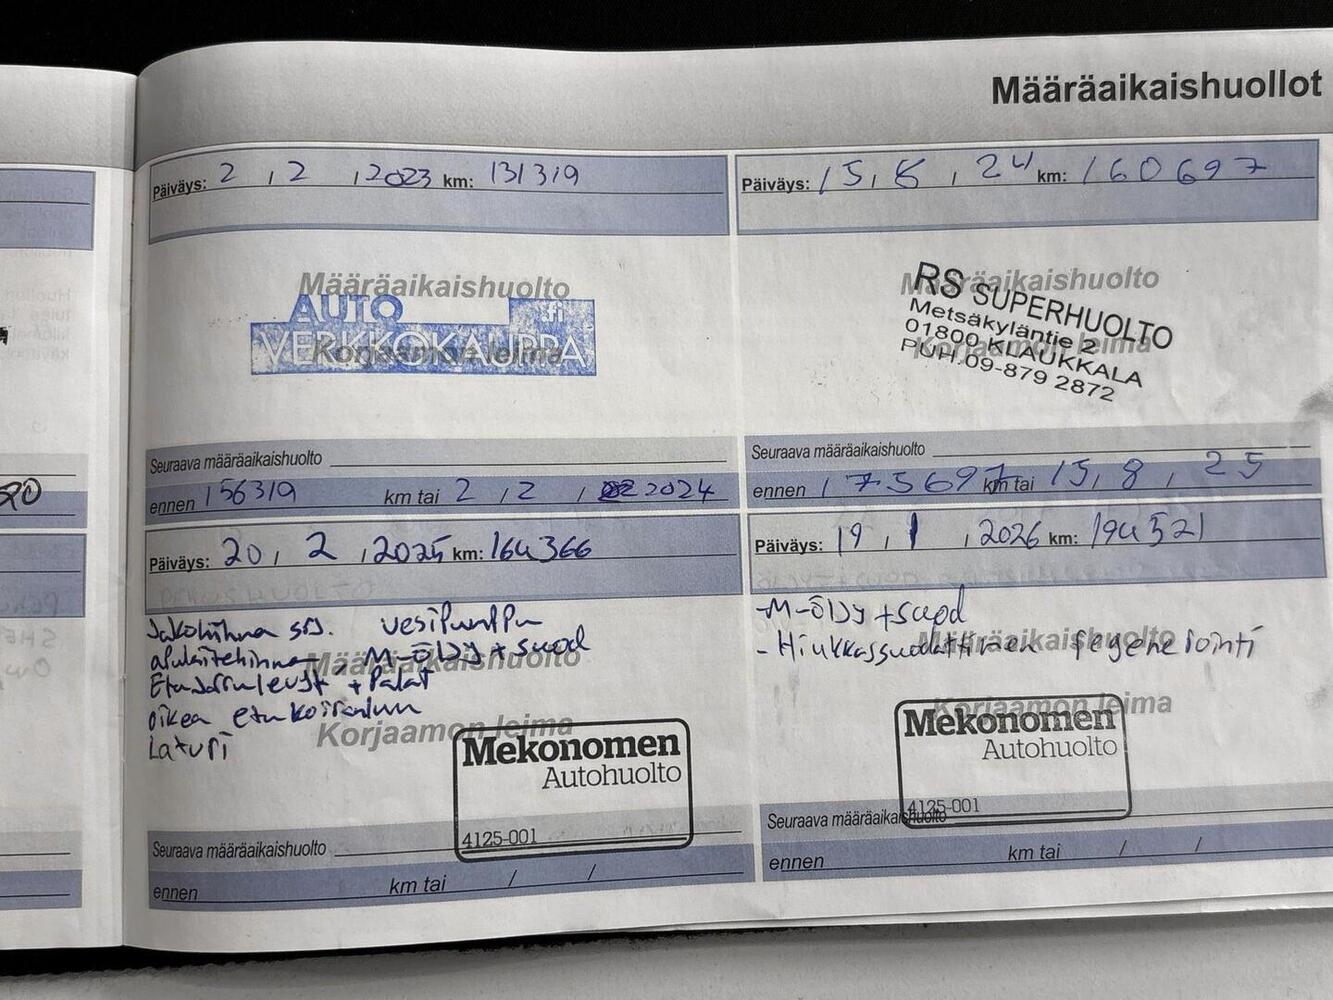 Määräaikaishuollot
Päiväys: 2 , 2 , 2023 km: 131319
Määräaikaishuolto
AUTO .fi
VERKKOKAUPPA
Korjaamon leima
Seuraava määräaikaishuolto
ennen 156319 km tai 2 , 2 , 2024
Päiväys: 15, 8 , 24 km: 160697
Määräaikaishuolto
Korjaamon leima
RS SUPERHUOLTO
Metsäkyläntie 2
01800 KLAUKKALA
PUH.09-879 2872
Seuraava määräaikaishuolto
ennen 175697 km tai 15, 8 , 25
Päiväys: 20, 2 , 2025 km: 164366
Jakohihna srj. vesipumppu
apulaitehihna, M-öljy + suod
Etujarrulevyt + Palat
oikea etu koiranluu
Laturi
Määräaikaishuolto
Korjaamon leima
Mekonomen
Autohuolto
4125-001
Seuraava määräaikaishuolto
ennen km tai / /
Päiväys: 19 , 1 , 2026 km: 194521
-M-öljy + suod
- Hiukkassuodattimen regenerointi
Määräaikaishuolto
Korjaamon leima
Mekonomen
Autohuolto
4125-001
Seuraava määräaikaishuolto
ennen km tai / /